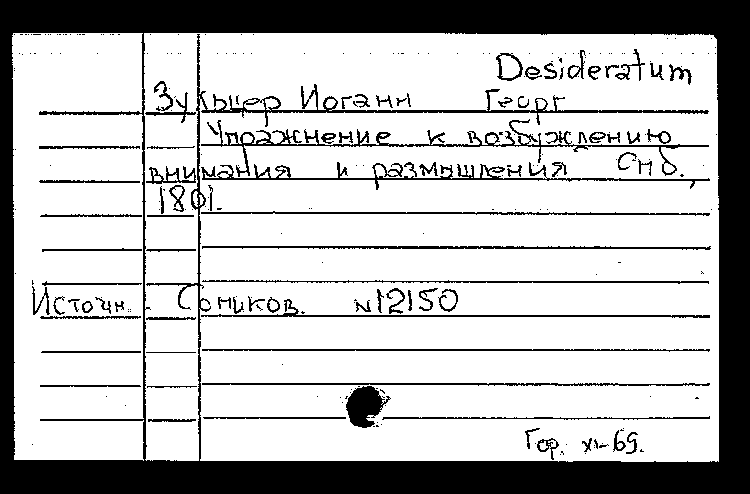 Desideratum
Зульцер Иоганн Георг
Упражнение к возбуждению
внимания и размышления Спб.,
1801.
Источн. Сопиков. №12150
Гор. XI-69.